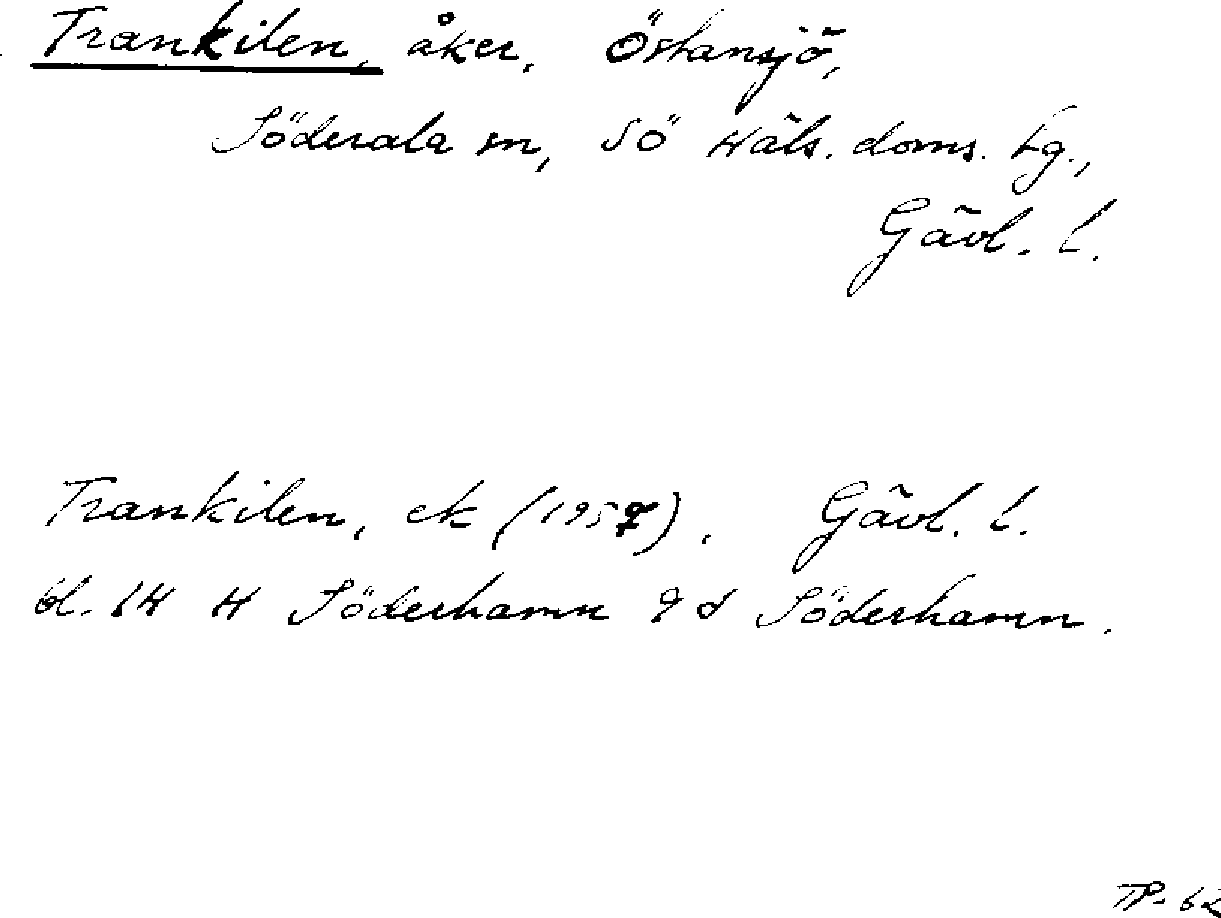 Trankilen, åker, Östansjö,
Söderala sn, Sö Häls. doms. tg.,
Gävl. l.
Trankilen, ek (1957). Gävl. l.
bl. 14 H Söderhamn 9 d Söderhamn.
TP-62